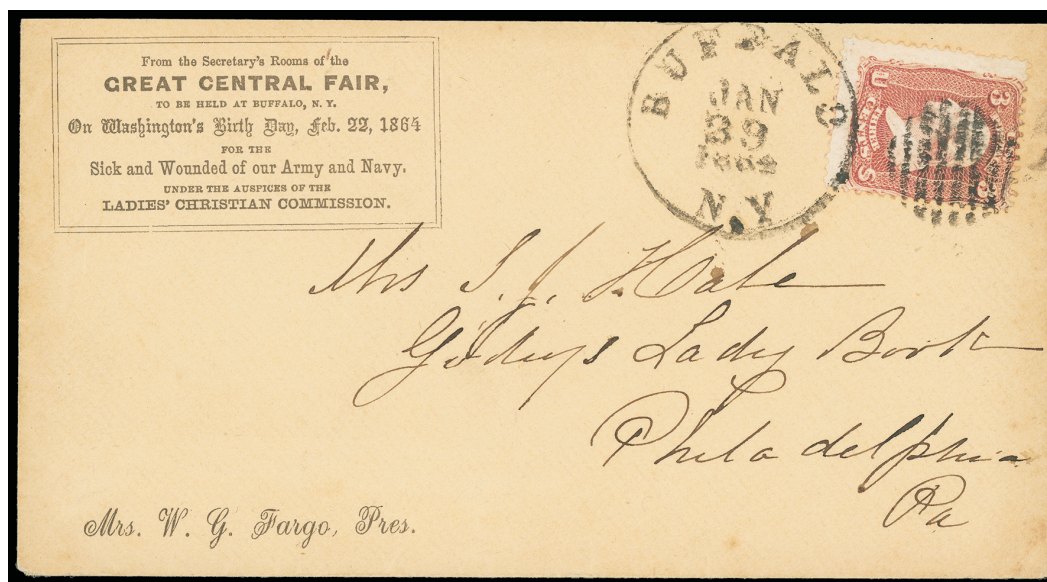 From the Secretary's Rooms of the
GREAT CENTRAL FAIR,
TO BE HELD AT BUFFALO, N. Y.
On Washington's Birth Day, Feb. 22, 1864
FOR THE
Sick and Wounded of our Army and Navy.
UNDER THE AUSPICES OF THE
LADIES' CHRISTIAN COMMISSION.
BUFFALO
JAN
N.Y
U 3
CENTS
S
Mrs S. J. Hale
Godey's Lady Book
Philadelphia
Pa
Mrs. W. G. Fargo, Pres.